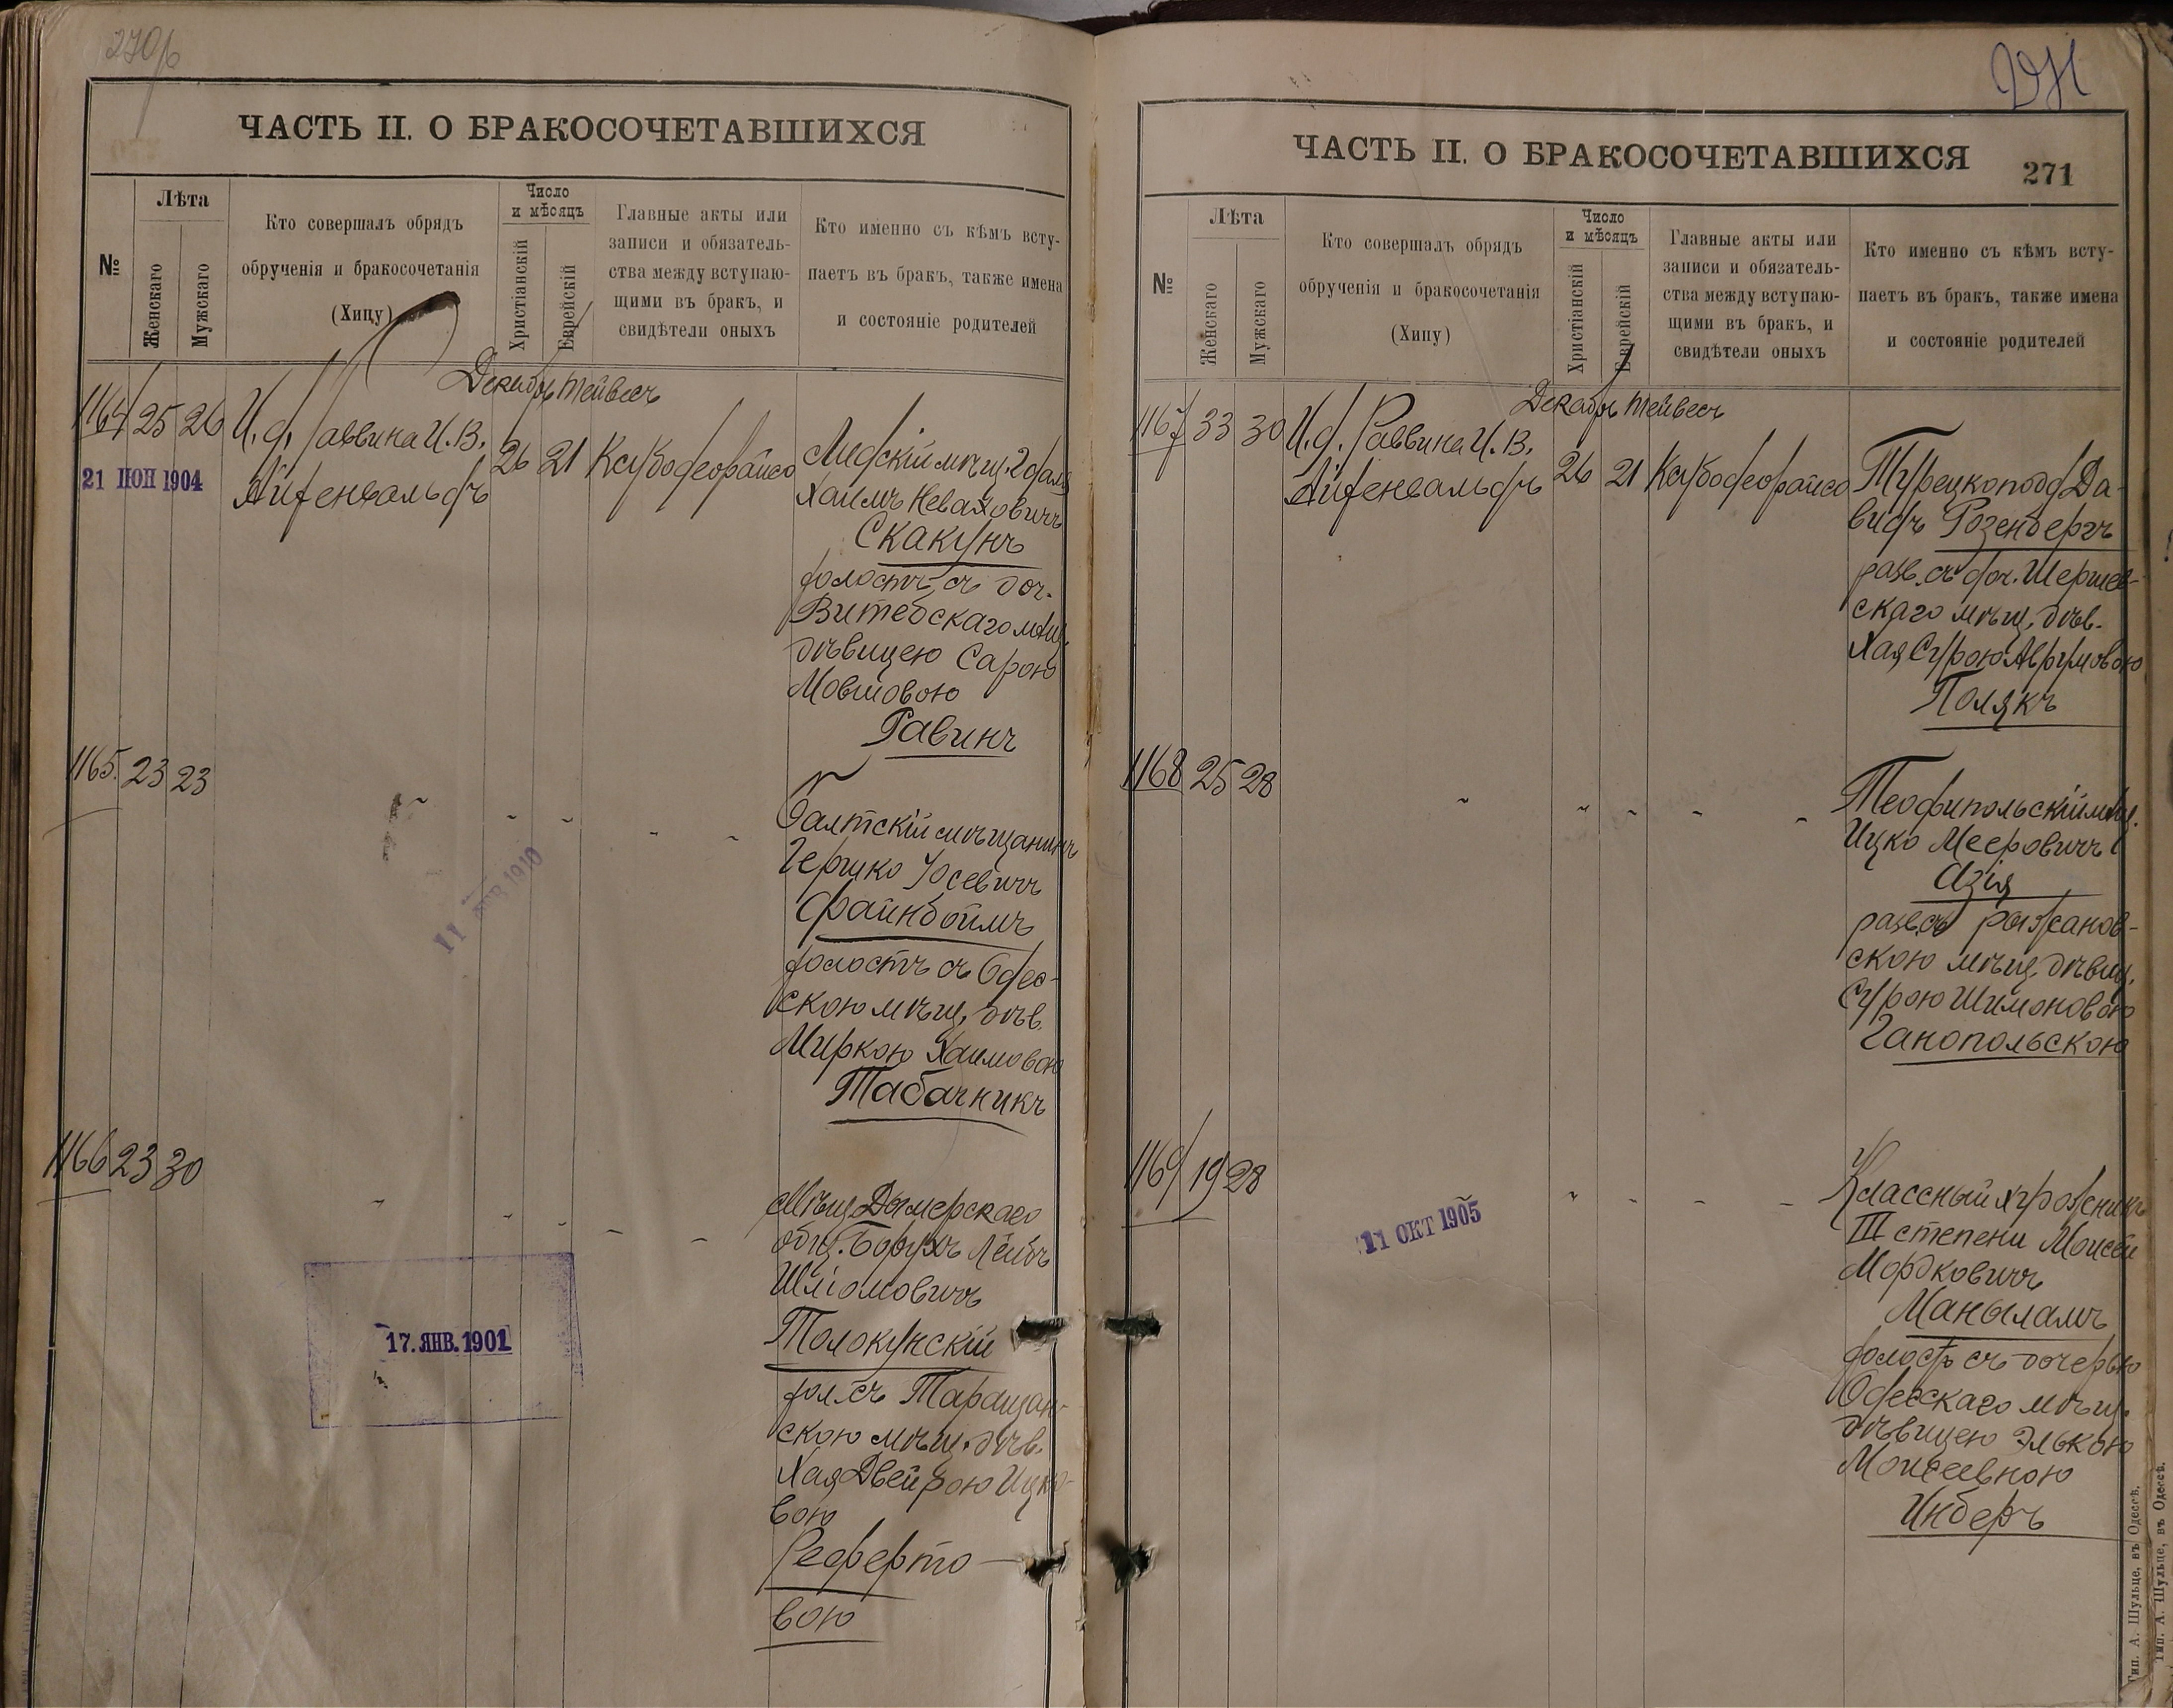 270об
ЧАСТЬ II. О БРАКОСОЧЕТАВШИХСЯ
№
Лѣта
Женскаго
Мужскаго
Кто совершалъ обрядъ
обрученія и бракосочетанія
(Хипу)
Число
и мѣсяцъ
Христіанскій
Еврейскій
Главные акты или
записи и обязатель-
ства между вступаю-
щими въ бракъ, и
свидѣтели оныхъ
Кто именно съ кѣмъ всту-
паетъ въ бракъ, также имена
и состояніе родителей
Декабрь Тейвесъ
1164 25 26 И. д. Раввина И. В.
Айзенвальдъ
26 21
21 1904
Лидскій мѣщ.
Хаимъ Неваховичъ
Скакунъ
холостъ, съ доч.
Витебскаго мѣщ.
дѣвицею Сарою
Мовшовою
Равинъ
1165. 23 23
11 1910
Балтскій мѣщанинъ
Гершко Іосевичъ
Файнбоймъ
холостъ съ Одес-
скою мѣщ. дѣв.
Миркою Хаимовою
Табачникъ
1166 23 30
17. ЯНВ. 1901
Мѣщ. Дымерскаго
общ. Борухъ Лейбъ
Шліомовичъ
Толокунскій
хол. съ Таращан-
скою мѣщ. дѣв.
Хая Двейрою Ицко-
вою
Реферто-
вою
ЧАСТЬ II. О БРАКОСОЧЕТАВШИХСЯ
271
№
Лѣта
Женскаго
Мужскаго
Кто совершалъ обрядъ
обрученія и бракосочетанія
(Хипу)
Число
и мѣсяцъ
Христіанскій
Еврейскій
Главные акты или
записи и обязатель-
ства между вступаю-
щими въ бракъ, и
свидѣтели оныхъ
Кто именно съ кѣмъ всту-
паетъ въ бракъ, также имена
и состояніе родителей
Декабрь Тейвесъ
1167 33 30 И. д. Раввина И. В.
Айзенвальдъ
26 21
Турецкоподд. Да-
видъ Розенбергъ
разв. съ доч. Шершев-
скаго мѣщ. дѣв.
Хая Сурою Аврумовою
Полякъ
1168 25 28
Теофипольскій мѣщ.
Ицко Мееровичъ
Азія
разв. съ
скою мѣщ. дѣвиц.
Сурою Шимоновою
Ганопольскою
1169 19 28
11 ОКТ 1905
Классный художникъ
III степени Моисей
Мордковичъ
Маныламъ
холостъ съ дочерью
Одесскаго мѣщ.
дѣвицею Элькою
Моисеевною
Инберъ
Тип. А. Шульце, въ Одессѣ.
Тип. А. Шульце, въ Одессѣ.